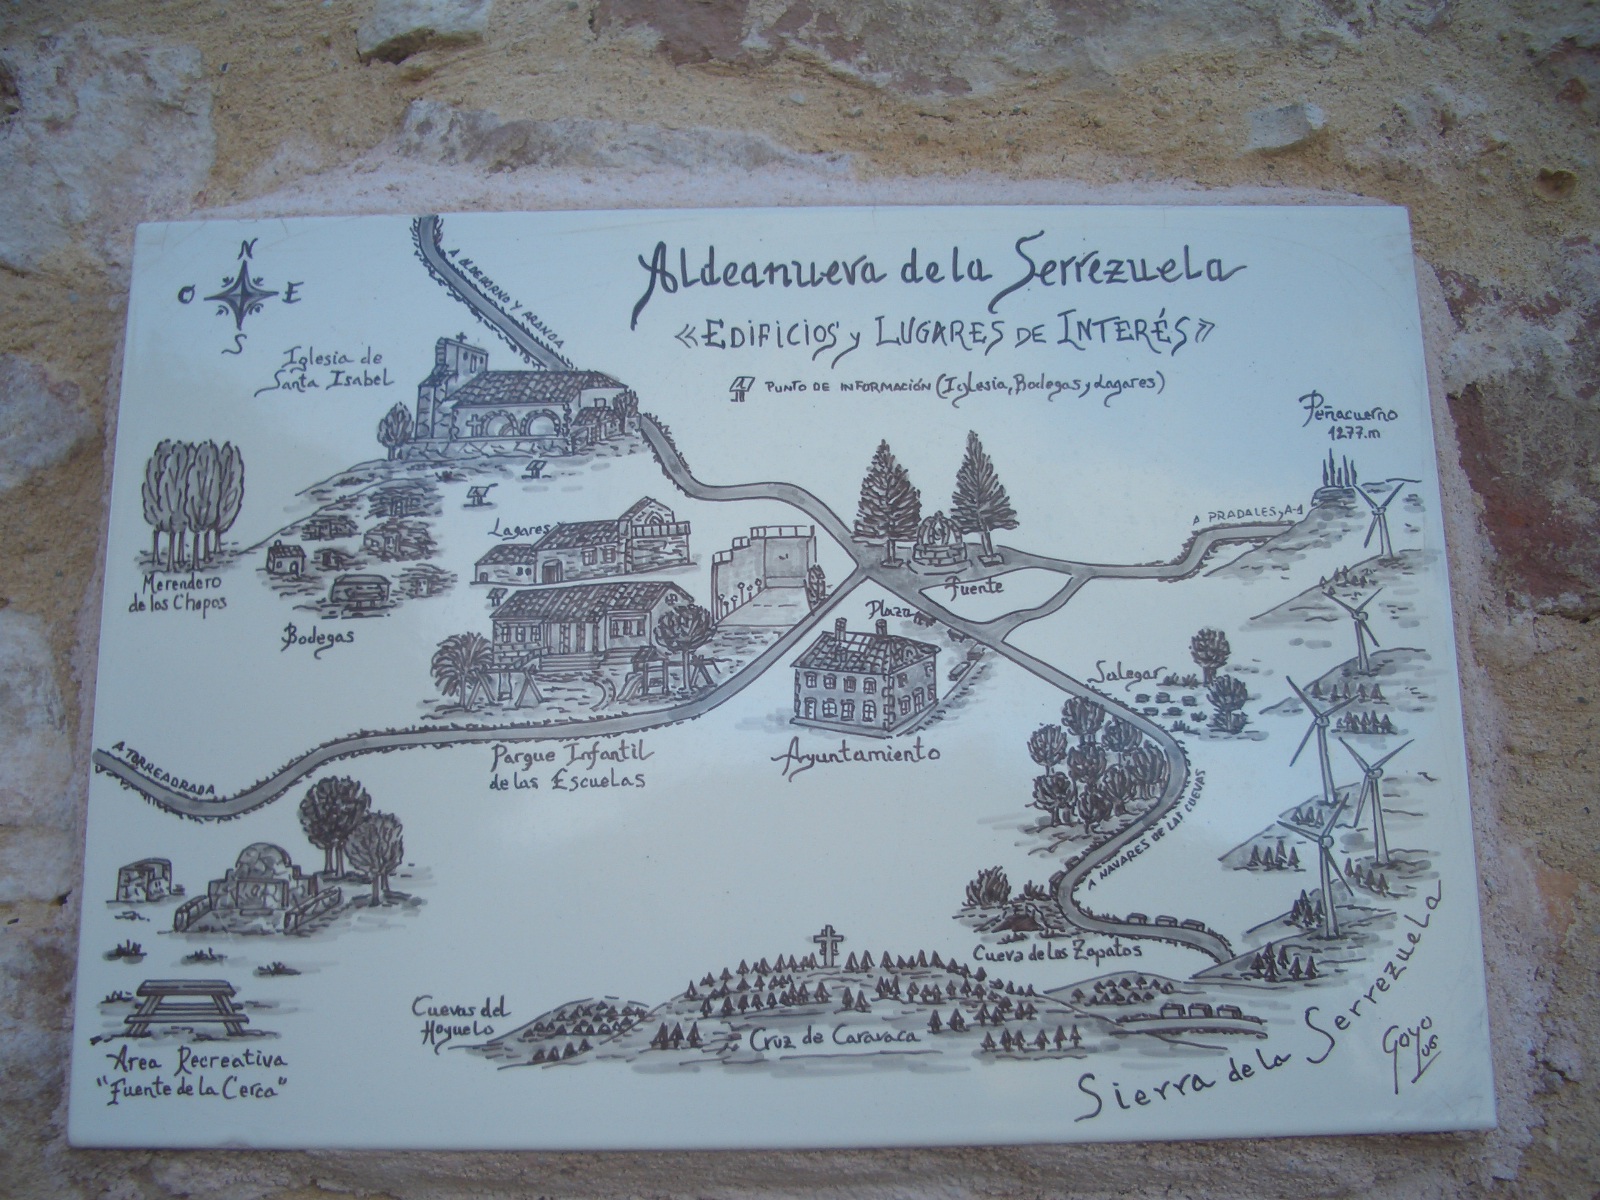 N
O E
S
A ALDEHORNO Y ARANDA
Aldeanueva de la Serrezuela
«EDIFICIOS y LUGARES DE INTERÉS»
PUNTO DE INFORMACIÓN (Iglesia, Bodegas y Lagares)
Iglesia de
Santa Isabel
Peñacuerno
1277.m
A PRADALES y A-1
Lagares
Merendero
de los Chopos
Bodegas
Fuente
Plaza
Salegar
Parque Infantil
de las Escuelas
Ayuntamiento
A TORREADRADA
A NAVARES DE LAS CUEVAS
Cueva de los Zapatos
Cuevas del
Hoyuelo
Cruz de Caravaca
Area Recreativa
"Fuente de la Cerca"
Sierra de la Serrezuela
Goyo